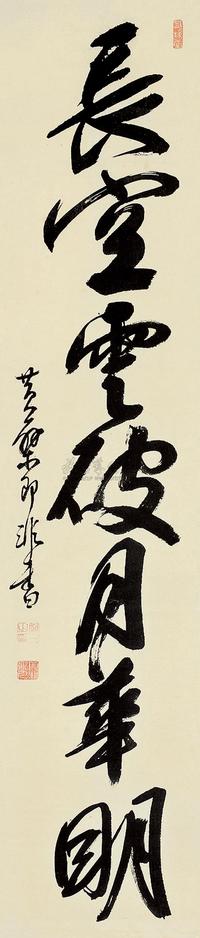 長空雲破月華明
黄檗即非書